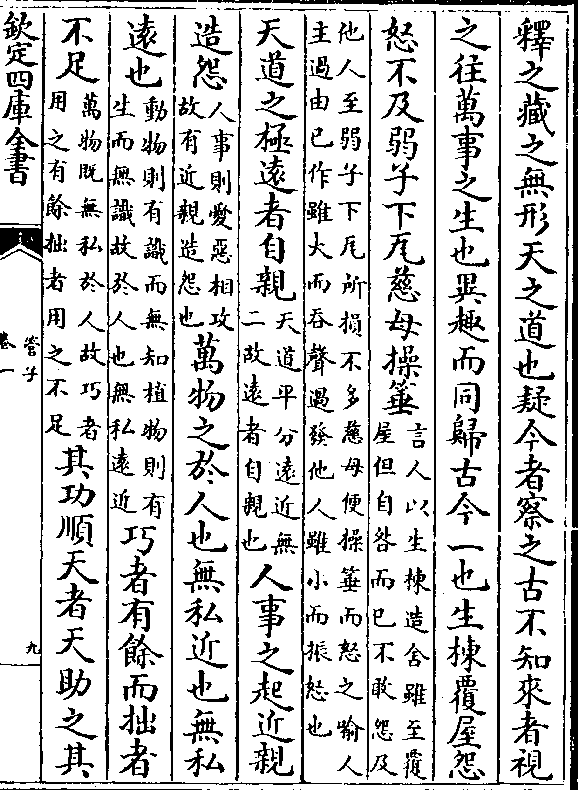 釋之藏之無形天之道也疑今者察之古不知來者視
之往萬事之生也異趣而同歸古今一也生棟覆屋怨
怒不及弱子下瓦慈母操箠
言人以生棟造舍雖至覆
屋但自咎而已不敢怨及
他人至弱子下瓦所損不多慈母便操箠而怒之喻人
主過由已作雖大而吞聲過發他人雖小而振怒也
天道之極遠者自親
天道平分遠近無
二故遠者自親也
人事之起近親
造怨
人事則愛惡相攻
故有近親造怨也
萬物之於人也無私近也無私
遠也
動物則有識而無知植物則有
生而無識故於人也無私遠近
巧者有餘而拙者
不足
萬物既無私於人故巧者
用之有餘拙者用之不足
其功順天者天助之其
欽定四庫全書
管子
卷一
九